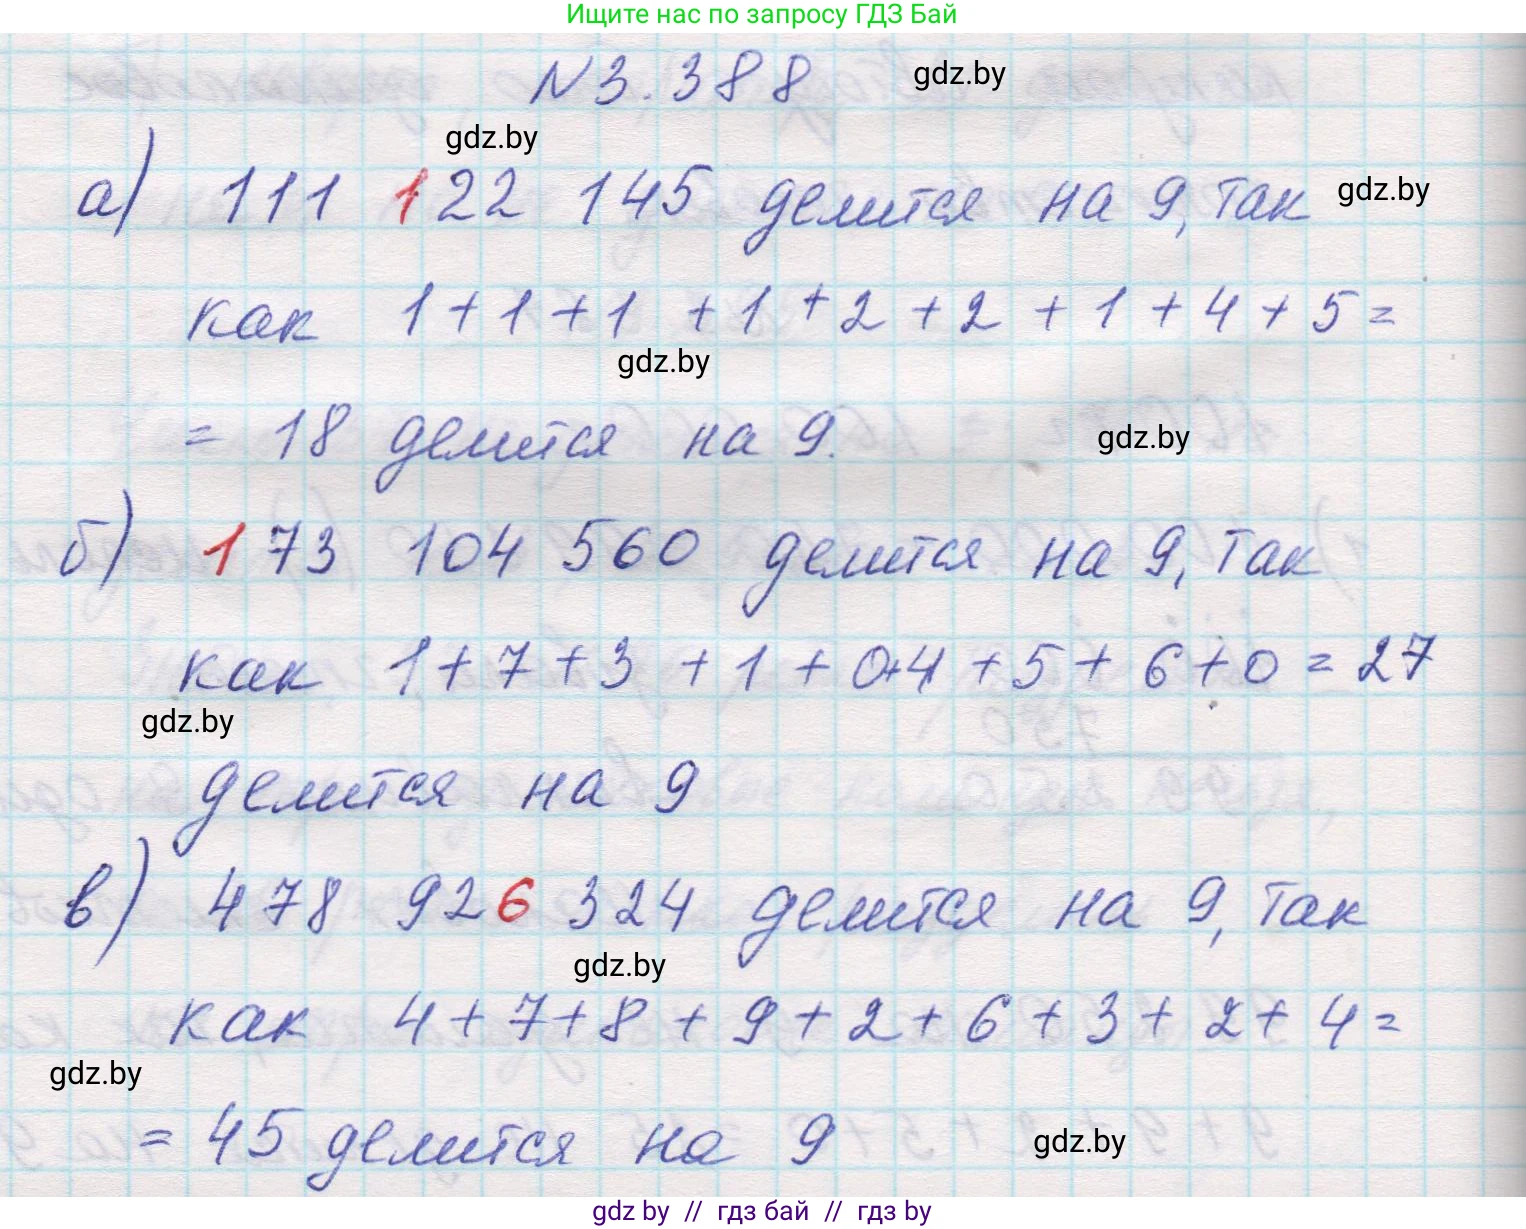 Ищите нас по запросу ГДЗ Бай
N 3.388
gdz.by
gdz.by
а) 111 122 145 делится на 9, так
gdz.by
как 1 + 1 + 1 + 1 + 2 + 2 + 1 + 4 + 5 =
gdz.by
= 18 делится на 9.
gdz.by
б) 173 104 560 делится на 9, так
как 1 + 7 + 3 + 1 + 0 + 4 + 5 + 6 + 0 = 27
gdz.by
делится на 9
в) 478 926 324 делится на 9, так
gdz.by
как 4 + 7 + 8 + 9 + 2 + 6 + 3 + 2 + 4 =
gdz.by
= 45 делится на 9
gdz.by
gdz by // гдз бай // гдз by